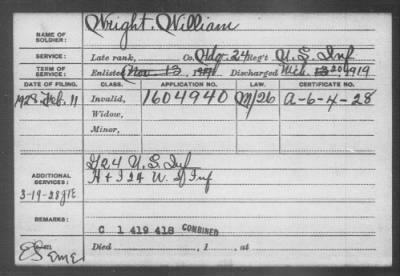 Wright, William
NAME OF SOLDIER:
SERVICE: Late rank, Co. Hdqr. 24 Reg't U.S. Inf
TERM OF SERVICE: Enlisted Nov. 13, Discharged Mch. 1919
DATE OF FILING. CLASS. APPLICATION NO. LAW. CERTIFICATE NO.
1928 Feb. 11 Invalid, 1604940 M/26 A-6-4-28
Widow,
Minor,
ADDITIONAL SERVICES: G 24 U.S. Inf
H + I 24 U. S Inf
3-19-28
REMARKS:
C 1 419 418 COMBINED
Died , 1 , at